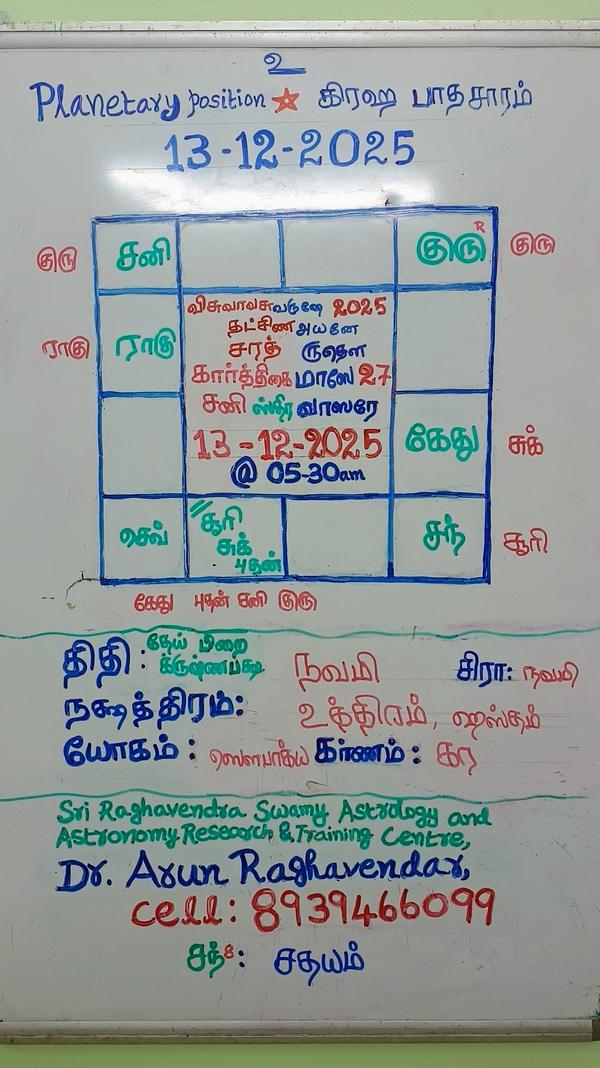 உ
Planetary position கிரஹ பாதசாரம்
13-12-2025
குரு சனி குரு R குரு
ராகு ராகு
விசுவாவசுவருஷே 2025
தட்சிண அயனே
சரத் ருதௌ
கார்த்திகை மாஸே 27
சனி ஸ்திர வாஸரே
13-12-2025
@ 05-30am
கேது சுக்
செவ் சூரி சுக் புதன் சந் சூரி
கேது புதன் சனி குரு
திதி: தேய் பிறை க்ருஷ்ணபக்ஷ நவமி சிரா: நவமி
நக்ஷத்திரம்: உத்திரம், ஹஸ்தம்
யோகம்: ஸௌபாக்ய கரணம்: கர
Sri Raghavendra Swamy Astrology and
Astronomy Research & Training Centre,
Dr. Arun Raghavendar,
cell: 8939466099
சந் 8: சதயம்